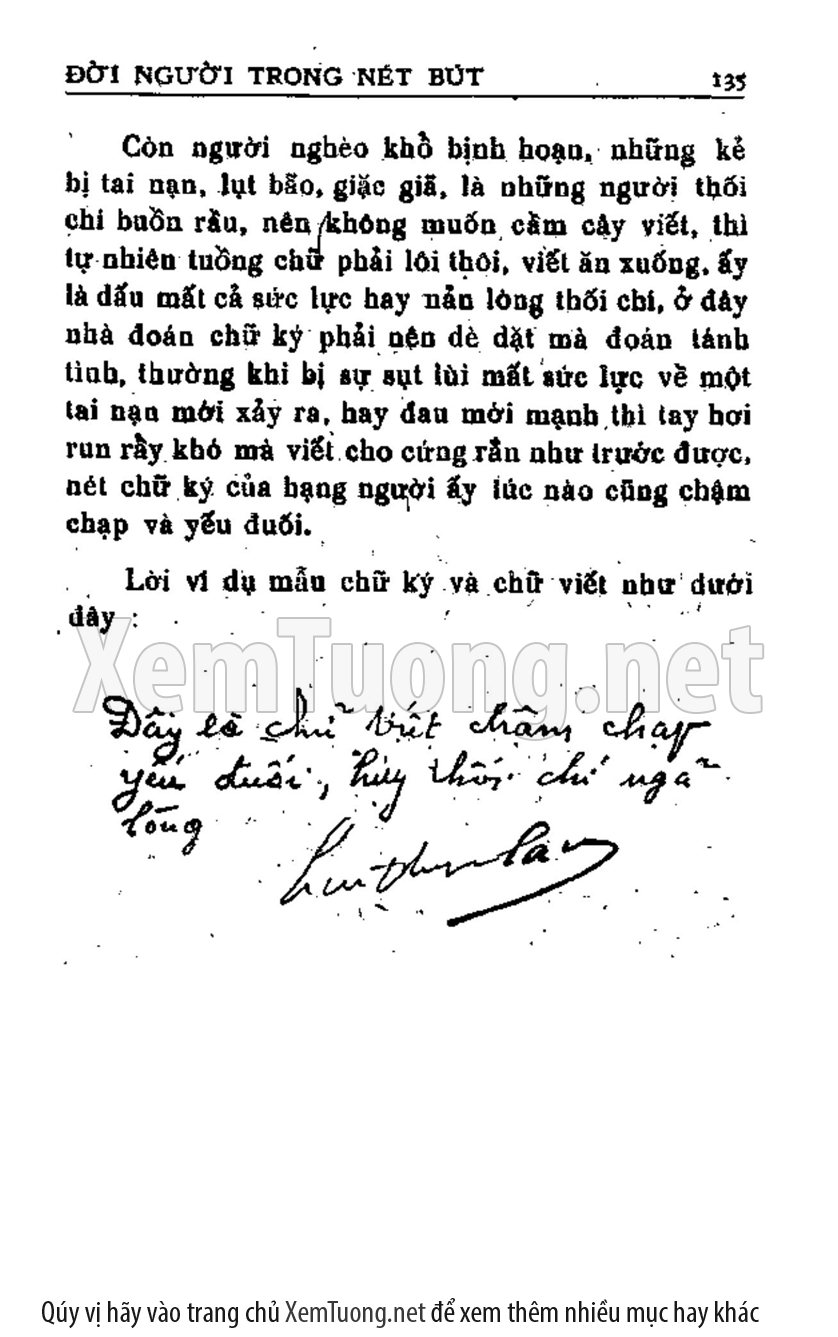 ĐỜI NGƯỜI TRONG NÉT BÚT 135
Còn người nghèo khổ bịnh hoạn, những kẻ
bị tai nạn, lụt bão, giặc giã, là những người thối
chí buồn rầu, nên không muốn cầm cây viết, thì
tự nhiên tuồng chữ phải lôi thôi, viết ăn xuống, ấy
là dấu mất cả sức lực hay nản lòng thối chí, ở đây
nhà đoán chữ ký phải nên dè dặt mà đoán tánh
tình, thường khi bị sự sụt lùi mất sức lực về một
tai nạn mới xảy ra, hay đau mới mạnh thì tay hơi
run rẩy khó mà viết cho cứng rắn như trước được,
nét chữ ký của hạng người ấy lúc nào cũng chậm
chạp và yếu đuối.
Lời ví dụ mẫu chữ ký và chữ viết như dưới
đây :
XemTuong.net
Đây là chữ viết chậm chạp
yếu đuối, hay thối chí ngã
lòng
Qúy vị hãy vào trang chủ XemTuong.net để xem thêm nhiều mục hay khác